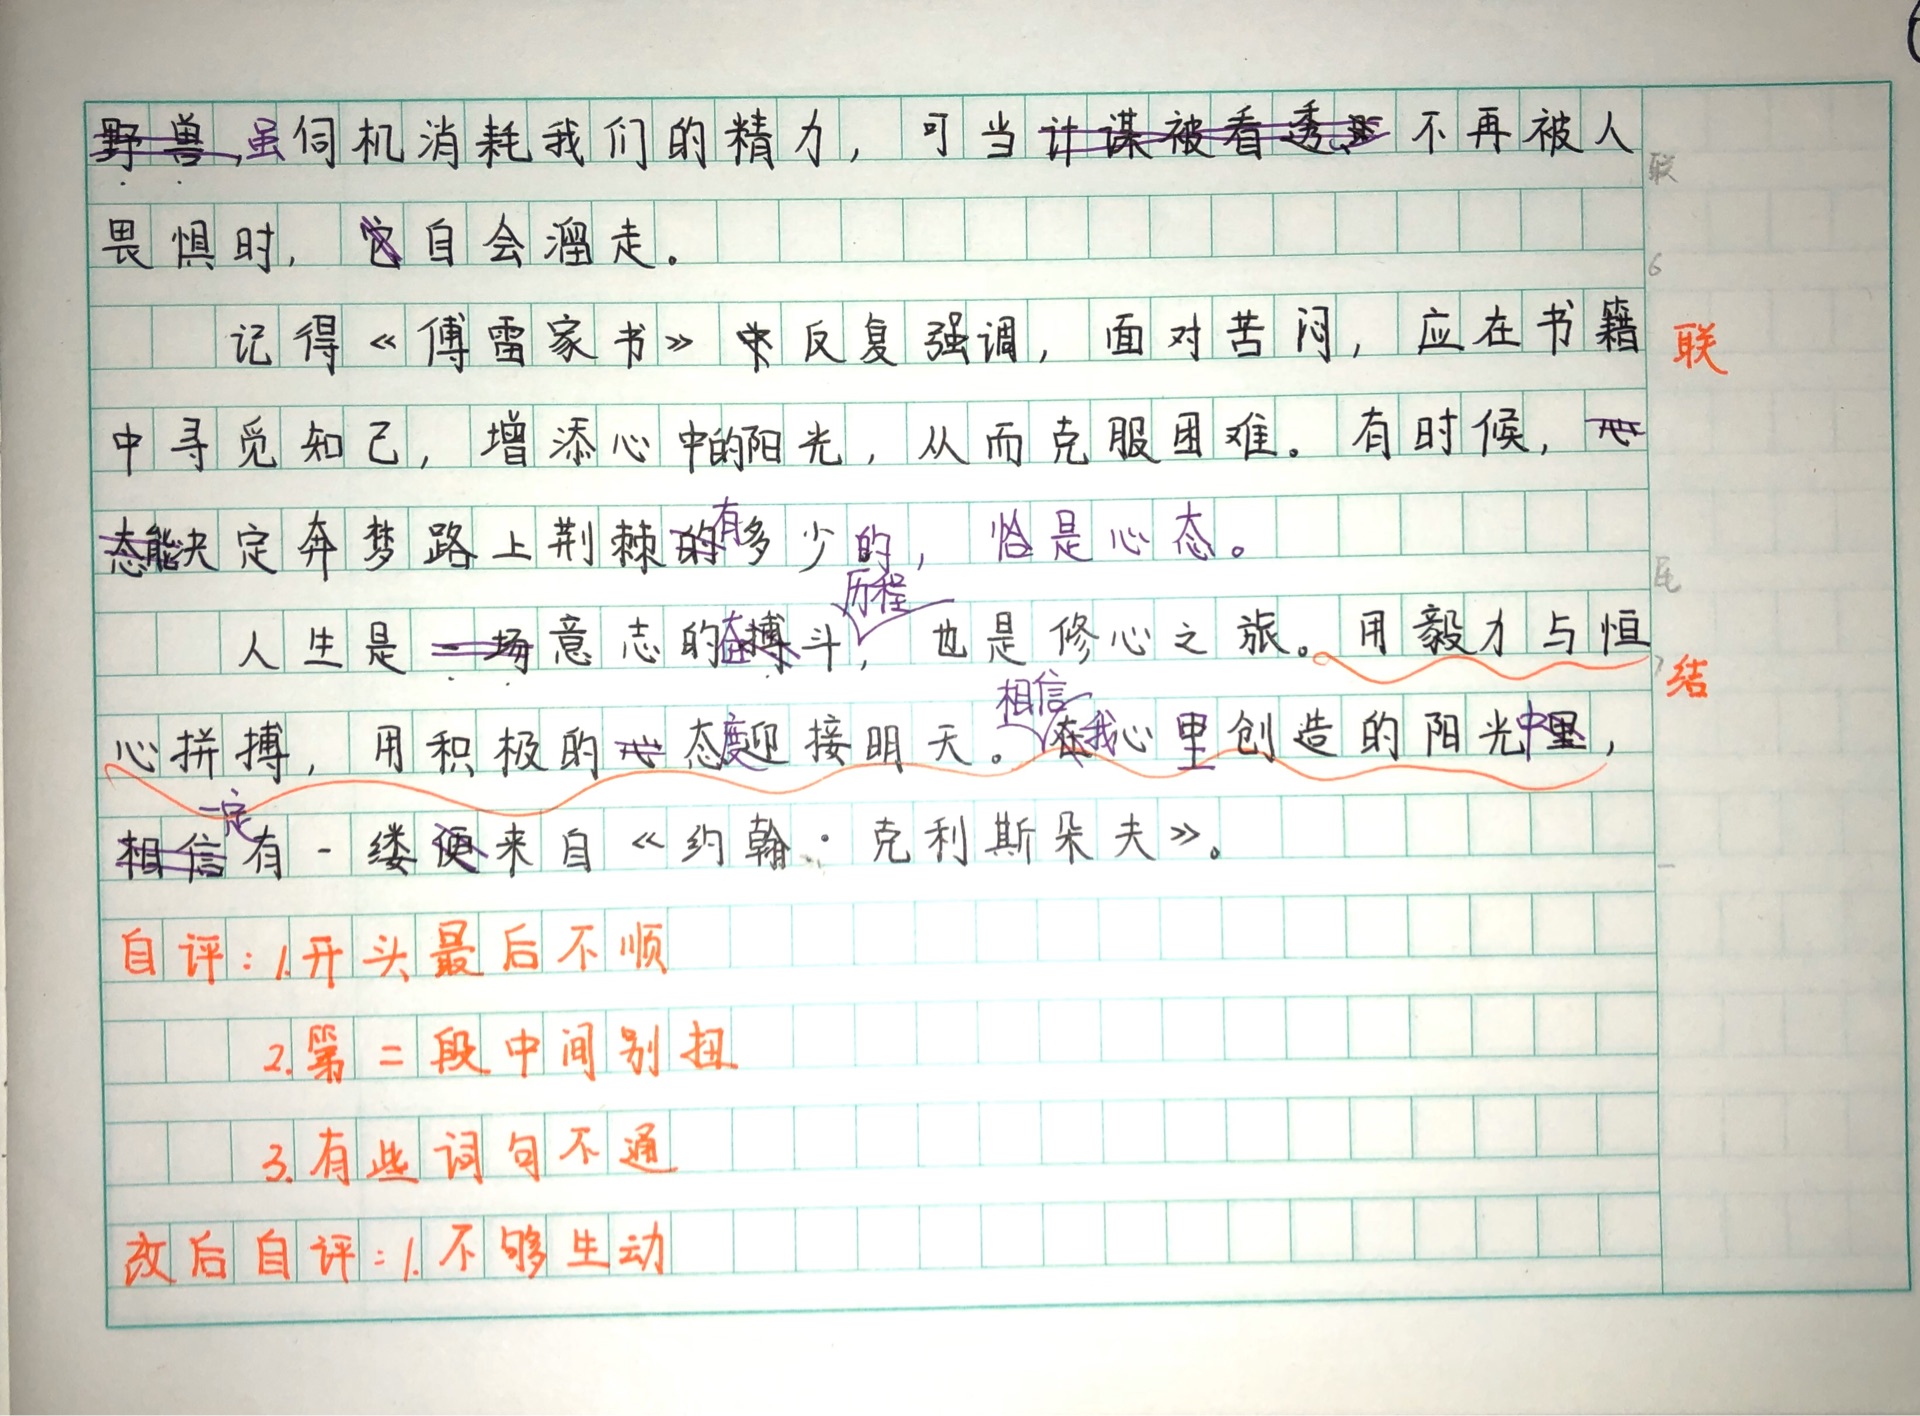 野兽,虽伺机消耗我们的精力，可当计谋被看透,不再被人
联
畏惧时，它自会溜走。
6
记得《傅雷家书》中反复强调，面对苦闷，应在书籍
联
中寻觅知己，增添心中的阳光，从而克服困难。有时候，心
态能决定奔梦路上荆棘的有多少的，恰是心态。
尾
历程
人生是一场意志的奋搏斗，也是修心之旅。用毅力与恒
结
相信
心拼搏，用积极的心态度迎接明天。在我心里创造的阳光中里，
一定
相信有一缕便来自《约翰·克利斯朵夫》。
自评：1.开头最后不顺
2.第二段中间别扭
3.有些词句不通
改后自评：1.不够生动